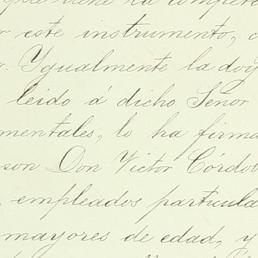 este instrumento,
Ygualmente la doy
leido á dicho Señor
mentales, lo ha firma
son Don Victor Córdob
empleados particula
mayores de edad, y